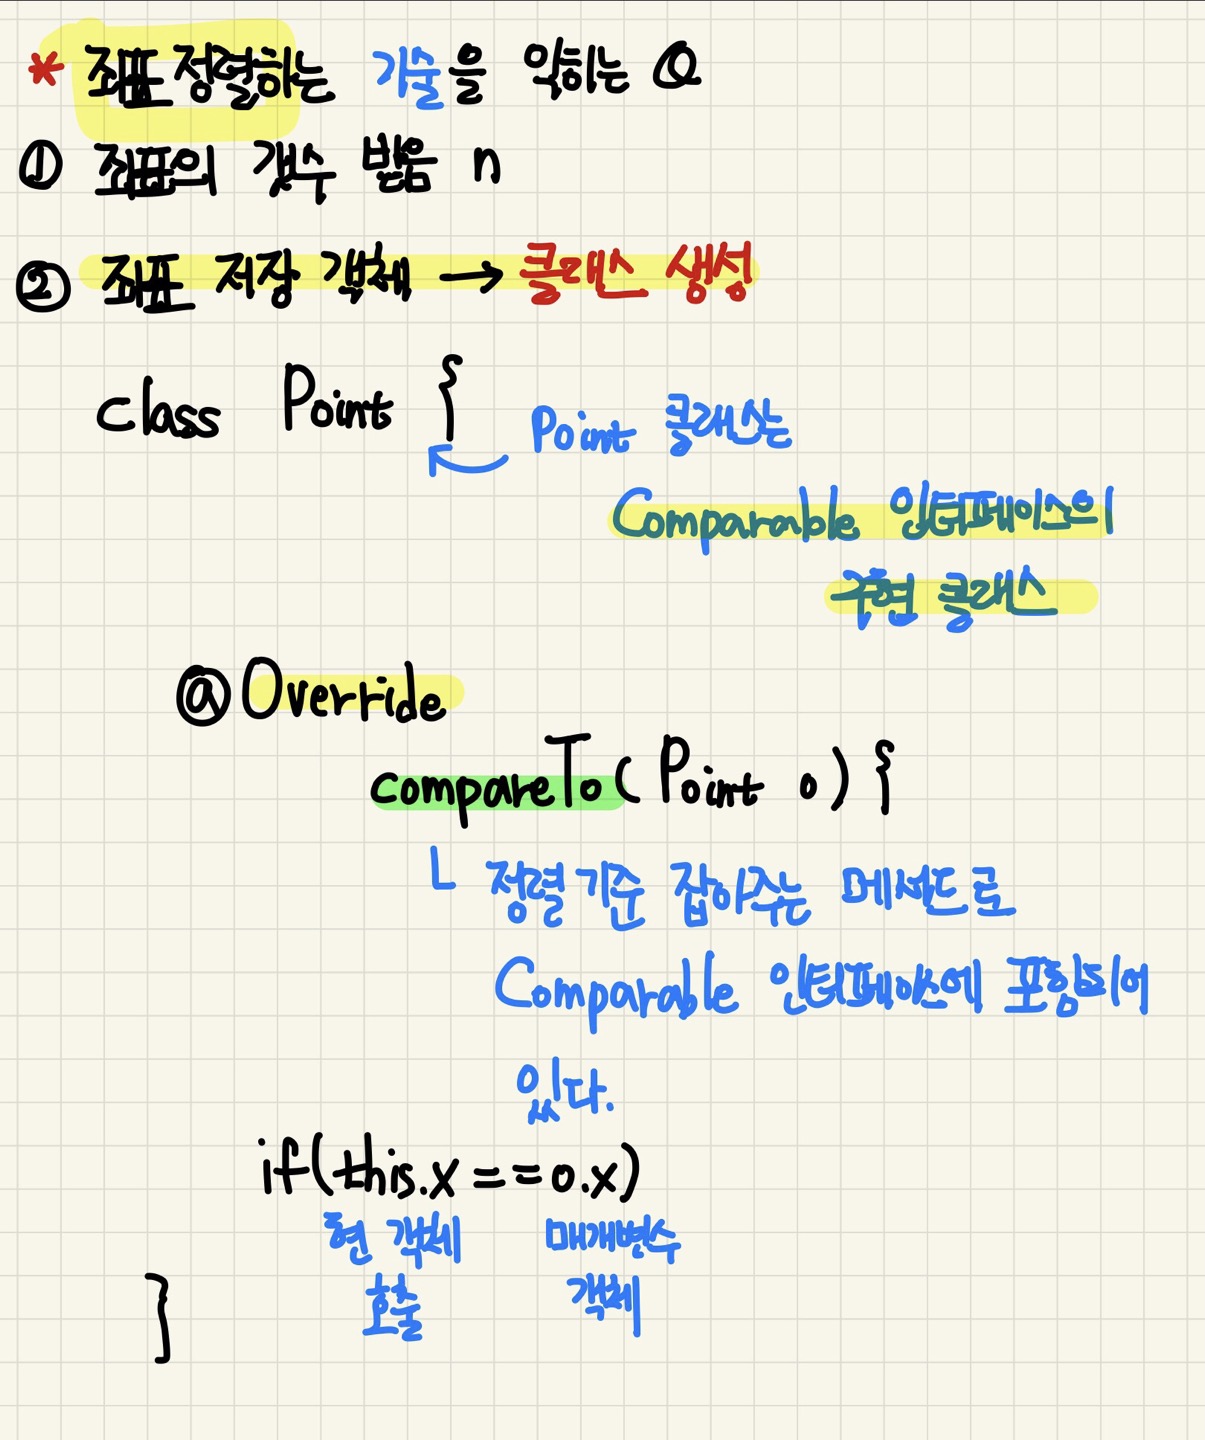 * 좌표 정렬하는 기술을 익히는 Q
① 좌표의 갯수 받음 n
② 좌표 저장 객체 → 클래스 생성
class Point {
Point 클래스는
Comparable 인터페이스의
구현 클래스
@Override
compareTo(Point o) {
ㄴ 정렬 기준 잡아주는 메서드로
Comparable 인터페이스에 포함되어
있다.
if(this.x==o.x)
현 객체 매개변수
호출 객체
}